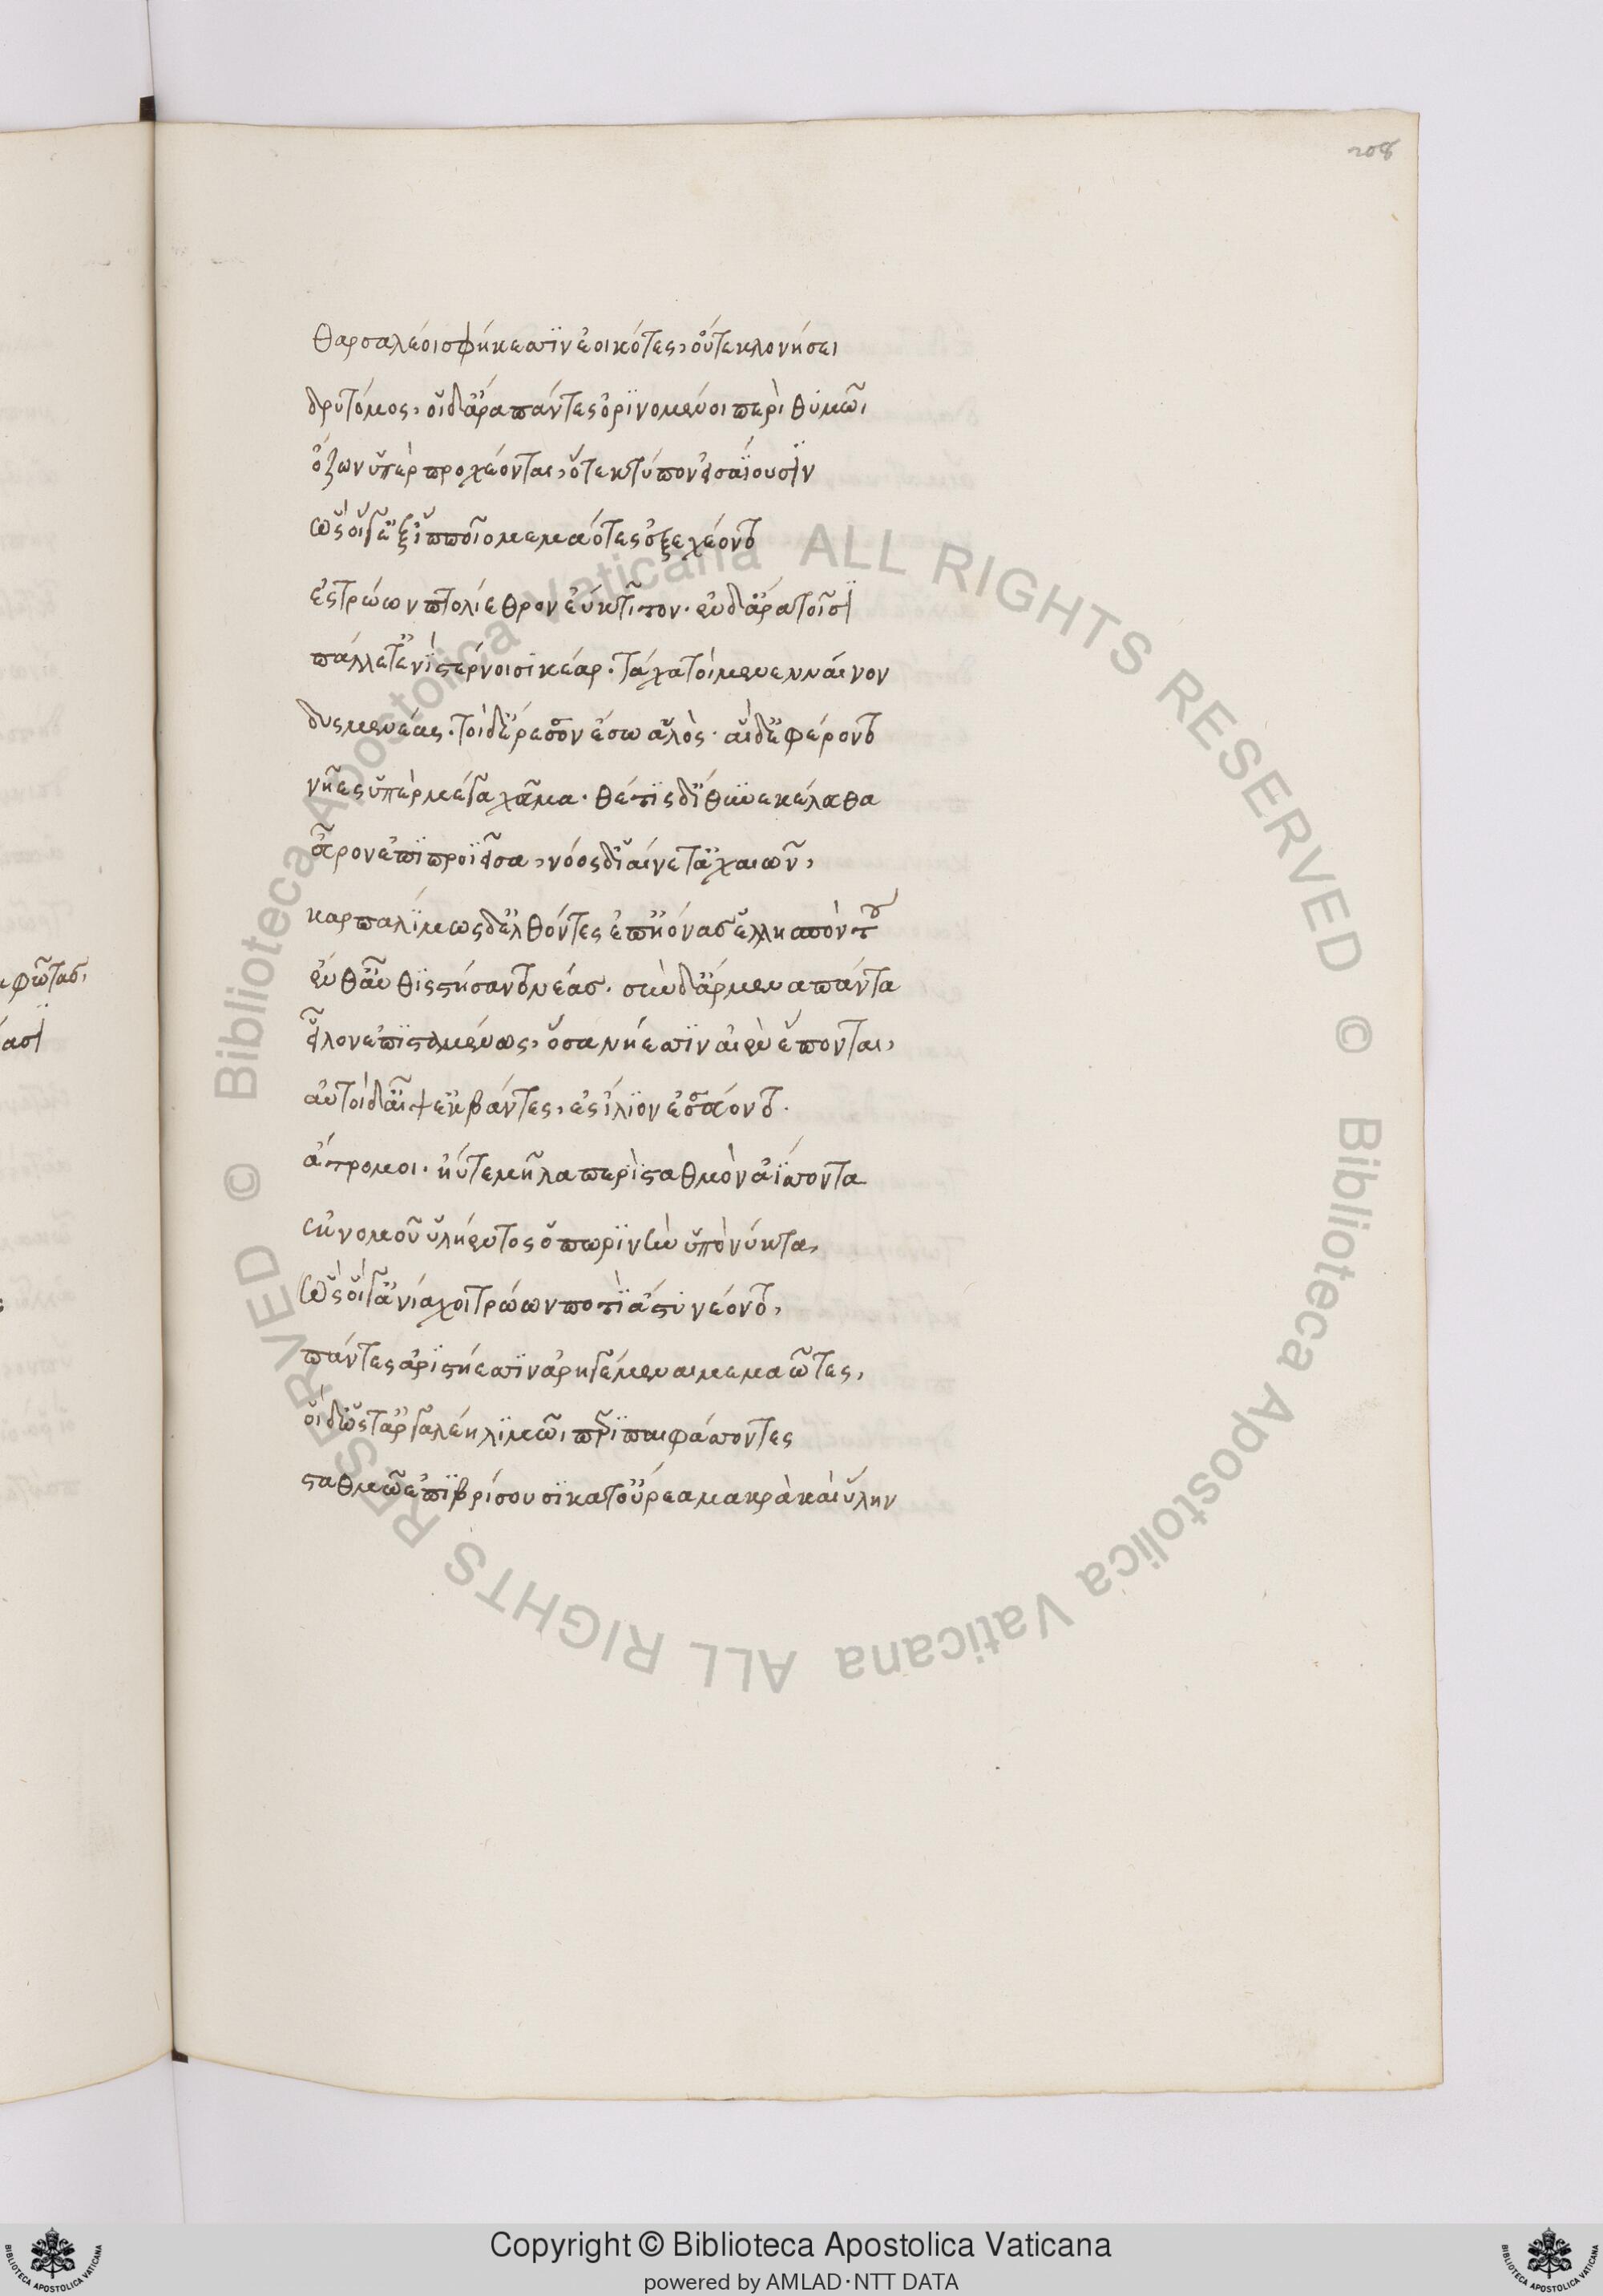 208
θαρσαλέοι σφήκεσσιν ἐοικότες, οὕς τε κλονήσει
δρυτόμος, οἳ δ' ἄρα πάντες ὀρινόμενοι περὶ θυμῶι
ὄζων ὑπὲρ προχέονται, ὅτε κτύπον εἰσαΐουσιν
ὣς οἵ γ' ἐξ ἵπποιο μεμαότες ἐξεχέοντο
ἐς τρώων πτολίεθρον ἐύκτιτον. ἐν δ' ἄρα τοῖσι
πάλλετ' ἐνὶ στέρνοισι κέαρ. τάχα τοὶ μὲν ἔναινον
δυσμενέας. τοὶ δ' ἔρεσσον ἔσω ἁλὸς. αἳ δ' ἐφέροντο
νῆες ὑπὲρ μέγα χεῦμα. θέτις δ' ἴθυνε κέλευθα
οὖρον ἐπιπροϊεῖσα, νόος δ' ἰαίνετ' ἀχαιῶν,
καρπαλίμως δ' ἐλθόντες ἐπ' ἠόνας ἑλλησπόντου
ἔνθ' αὖθι στήσαντο νέας. σὺν δ' ἄρμενα πάντα
εἷλον ἐπισταμένως, ὅσα νήεσσιν αἰὲν ἕπονται,
αὐτοὶ δ' αἶψ' ἐκβάντες, ἐς ἴλιον ἐσσεύοντο.
ἄτρομοι. ἠύτε μῆλα περὶ σταθμὸν ἀΐσσοντα
ἐκ νομοῦ ὑλήεντος ὀπωρινὴν ὑπὸ νύκτα,
ὣς οἵ γ' ἀνίαχοι τρώων ποτὶ ἄστυ νέοντο,
πάντες ἀριστήεσσιν ἀρηγέμεναι μεμαῶτες,
οἳ δ' ὥς τ' ἀργαλέηι λιμῶι περιπαιφάσσοντες
σταθμῶ ἐπιβρίσουσι κατ' οὔρεα μακρὰ καὶ ὕλην
Copyright © Biblioteca Apostolica Vaticana
powered by AMLAD·NTT DATA
© Biblioteca Apostolica Vaticana ALL RIGHTS RESERVED © Biblioteca Apostolica Vaticana ALL RIGHTS RESERVED
BIBLIOTECA APOSTOLICA VATICANA
BIBLIOTECA APOSTOLICA VATICANA